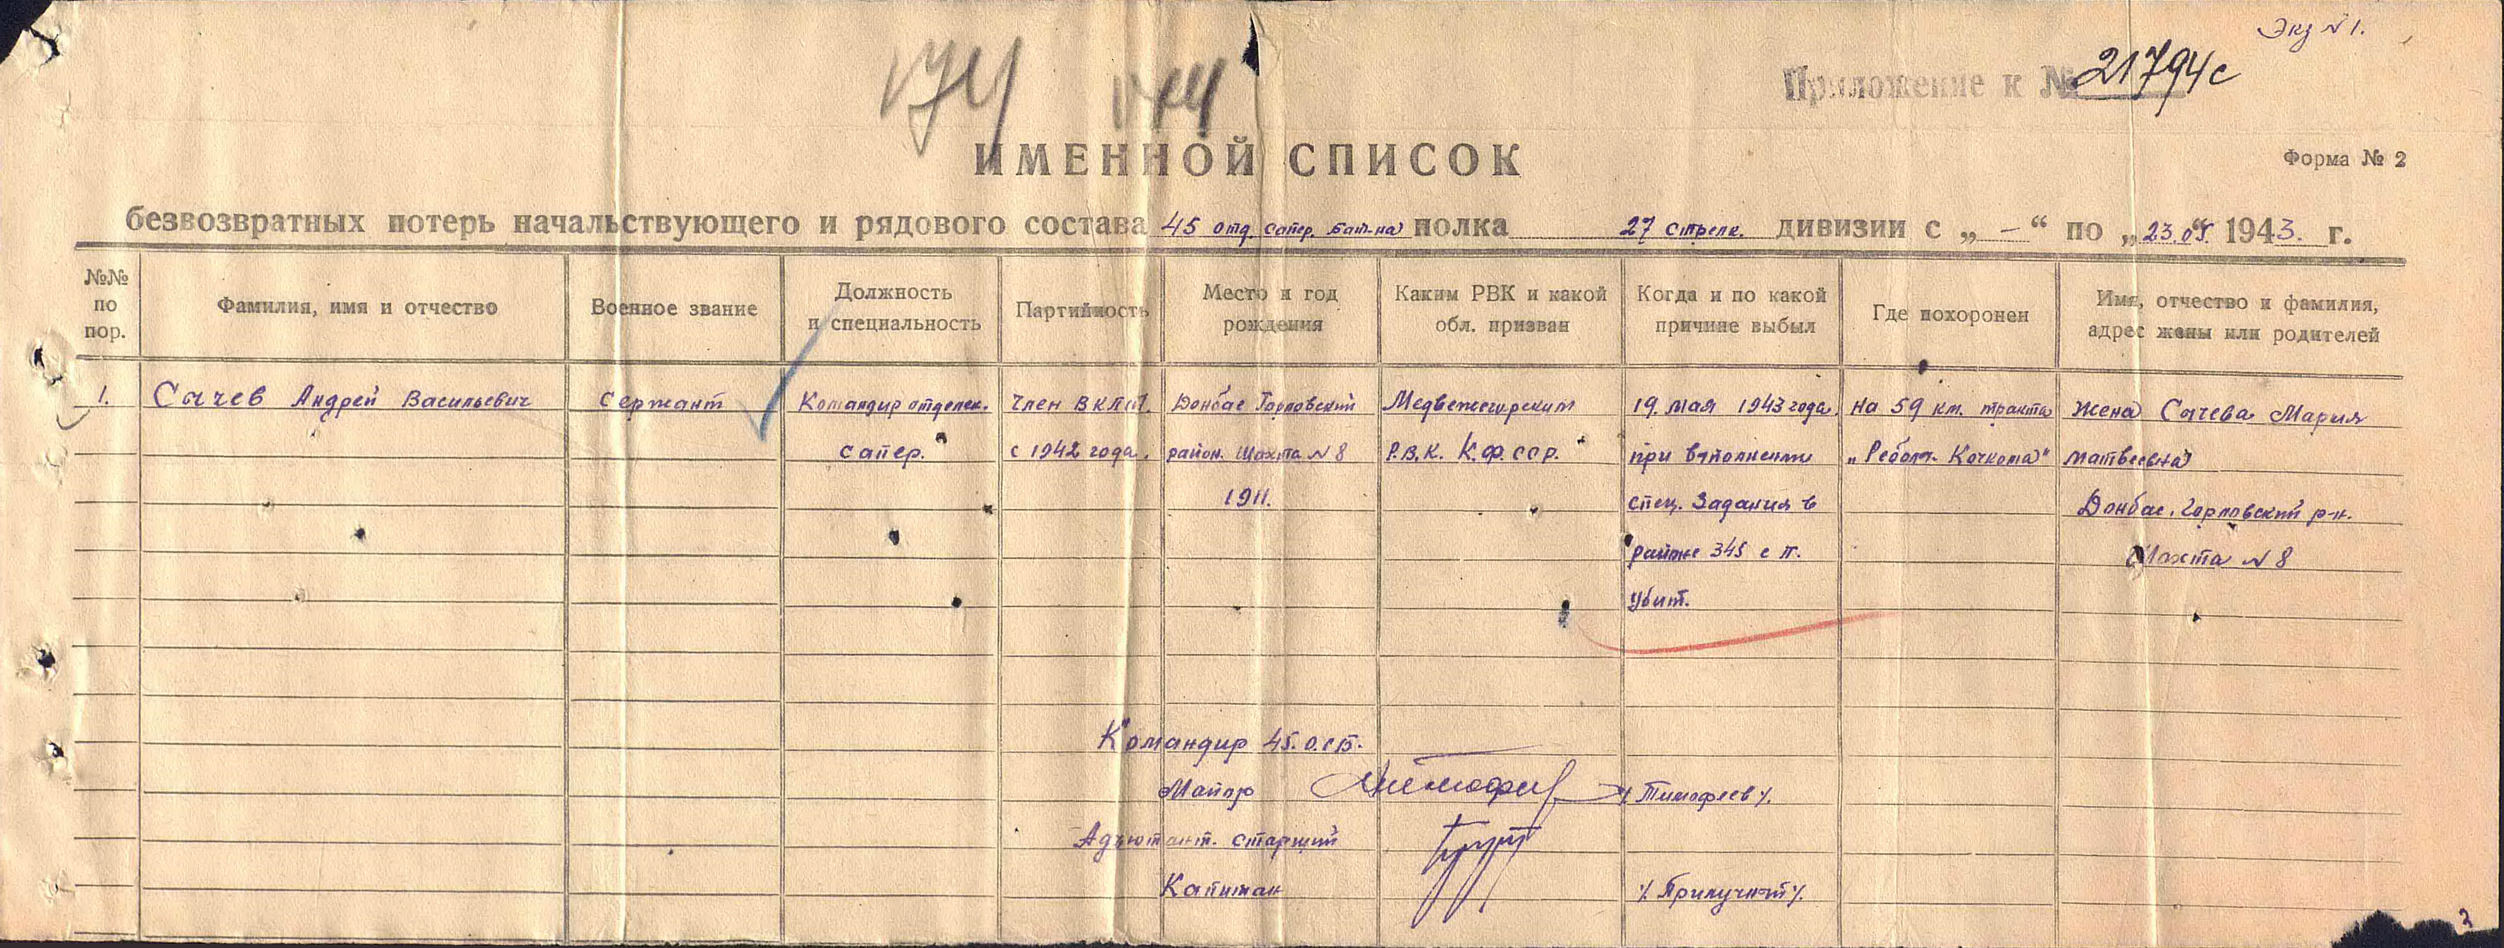 Экз №1.
Приложение к № 21794с
174 174
ИМЕННОЙ СПИСОК
Форма № 2
безвозвратных потерь начальствующего и рядового состава 45 отд. сапер. бат-на полка 27 стрелк. дивизии с „ — “ по „23.05.“ 1943. г.
№№ по пор.
Фамилия, имя и отчество
Военное звание
Должность и специальность
Партийность
Место и год рождения
Каким РВК и какой обл. призван
Когда и по какой причине выбыл
Где похоронен
Имя, отчество и фамилия, адрес жены или родителей
1. Сачев Андрей Васильевич сержант Командир отделен. Член ВКП(б). Донбас Горловский Медвежегорским 19. мая 1943 года. на 59 км. тракта жена Сачева Мария
сапер. с 1942 года. район. Шахта №8 Р.В.К. К.Ф.ССР. при выполнении „Реболы-Кочкома“ матвеевна
1911. спец. задания в Донбас. Горловский р-н.
районе 345 с п. Шахта №8
убит.
Командир 45.о.сб.
Майор /.Тимофеев/.
Адъютант. старший
Капитан
2